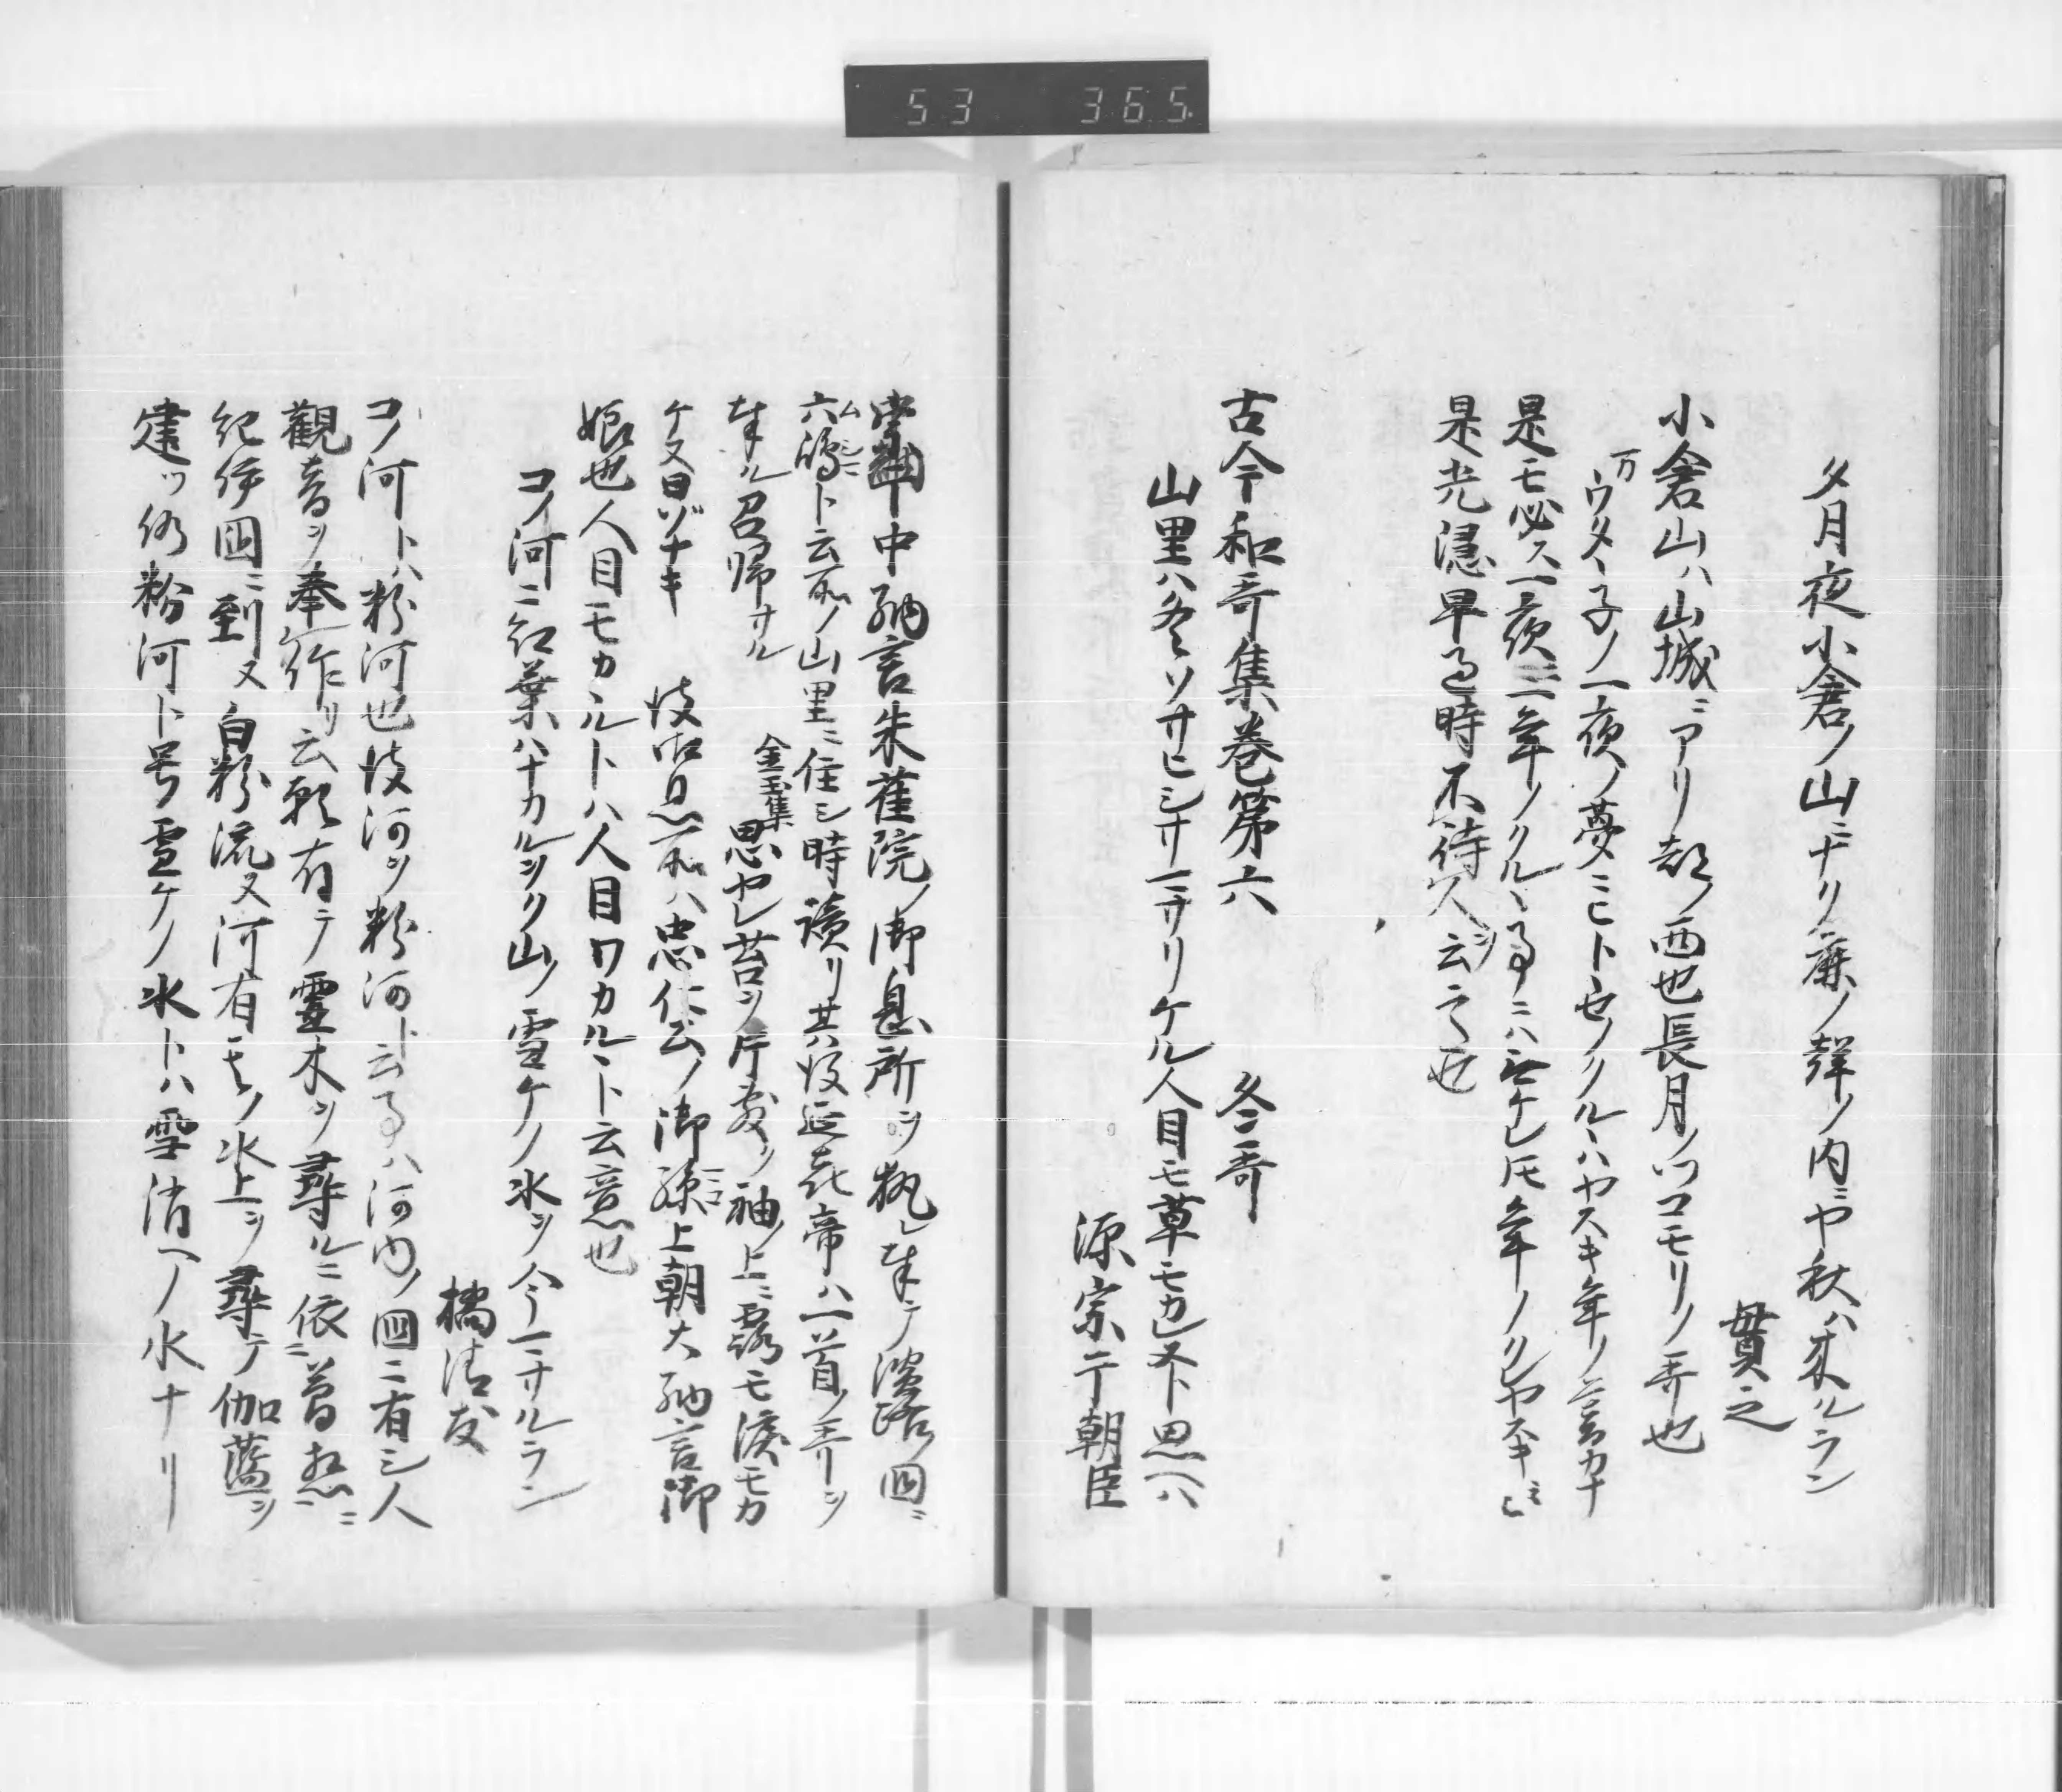 53 365
夕月夜小倉ノ山ニナク鹿ノ聲ノ内ニヤ秋ハ来ルラン
貫之
小倉山ハ山城ニアリ都ノ西也長月ノツコモリノ哥也
万ウタヽ子ノ一夜ノ夢ミヒトセノクルヽハヤスキ年ノ
是モ必ス一夜ニ一年ノクルヽ事ニハ无ケレ𪜈年ノクレヤスキ
是光隠早過時不待人ヲ云フ也
古今和哥集巻第六
冬哥
山里ハ冬ソサヒシサマサリケル人目モ草モカレヌト思ヘハ
源宗于朝臣
中納言朱雀院ノ御息所ヲ奉テ淡路ノ国ニ
六嶋ト云所ノ山里ニ住シ時讀リ其後延㐂帝ハ一首ノ哥ヲ
奉ル召帰サル
金玉集
思ヤレ苔ノ片敷ク袖ノ上ニ露モ涙モカ
ケヌ日ソナキ
彼御息所ハ忠仁公ノ御孫上朝大納言御
娘也人目モカルヽトハ人目ワカルヽト云意也
コノ河ニ紅葉ハナカルヲク山ノ雪ケノ水ヲ今マサルラン
橘清友
コノ河トハ粉河也彼河ヲ粉河ト云事ハ河内ノ国ニ有シ人
觀音ヲ奉作リ云願有テ霊木ヲ尋ルニ依
紀伊国ニ到ヌ白粉流ヌ河有其ノ水上ヲ尋テ伽藍ヲ
建ツ仍粉河ト号雪ケノ水トハ雪消ヘノ水ナリ